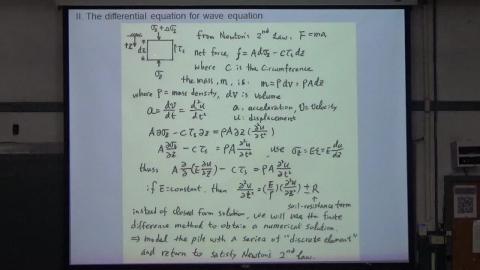 II. The differential equation for wave equation
σz + Δσz
from Newton's 2nd Law: F = ma
+z dz ρ τs
net force, f = Adσz - Cτs dz
where C is the circumference
σz
the mass, m, is: m = ρ dV = ρAdz
where ρ = mass density, dV is volume
a = dv/dt = d²u/dt² a: acceleration, v = velocity
u: displacement
A∂σz - Cτs∂z = ρA∂z(∂²u/∂t²)
A ∂σz/∂z - Cτs = ρA ∂²u/∂t² use σz = Eε = E du/dz
thus A ∂/∂z (E ∂u/∂z) - Cτs = ρA ∂²u/∂t²
if E = constant, then ∂²u/∂t² = (E/ρ)(∂²u/∂z²) ± R
soil-resistance term
instead of closed form solution, we will use the finite
difference method to obtain a numerical solution.
⇒ model the pile with a series of "discrete element"
and return to satisfy Newton's 2nd Law.